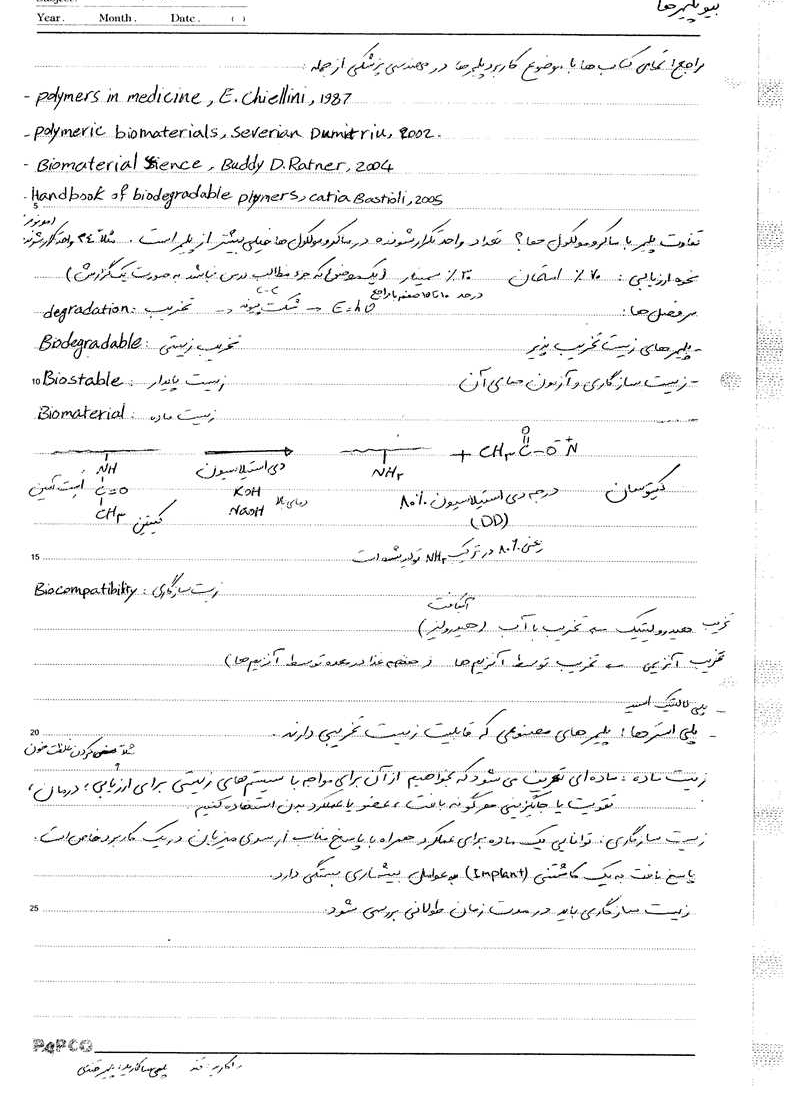 بیوپلیمرها
Year . Month . Date . ( )
مراجع: تمامی کتاب ها با موضوع کاربرد پلیمرها در مهندسی پزشکی از جمله :
- polymers in medicine , E. Chiellini , 1987
- polymeric biomaterials, Severian Dumitriu, 2002.
- Biomaterial Sience , Buddy D. Ratner, 2004
- Handbook of biodegradable plymers, catia Bastioli, 2005
5
تفاوت پلیمر با ماکرومولکول ها؟ تعداد واحد تکرارشونده در ماکرومولکول ها خیلی بیشتر از پلیمر است . مثلاً
نحوه ارزیابی : ۷۰٪ امتحان ۳۰٪ سمینار (یک موضوعی که جزء مطالب درس نباشد به صورت یک گزارش)
در حد ۱۰ تا ۱۵ صفحه با مراجع
سرفصل ها :
degradation : تخریب → شکست پیوند → E=hυ
C-C
- پلیمرهای زیست تخریب پذیر
Biodegradable : تخریب زیستی
- زیست سازگاری و آزمون های آن
10 Biostable : زیست پایدار
Biomaterial : زیست ماده
NH C=O CH۳ کیتین
دی استیلاسیون KOH NaOH دمای بالا
NH۲ + CH۳ C-O N
O
کیتوسان
درجه دی استیلاسیون ۸۰٪
(DD)
یعنی ۸۰٪ در ترکیب NH۲ تولید شده است
15
Biocompatibility : زیست سازگاری
تخریب هیدرولیتیک → تخریب با آب (هیدرولیز)
تخریب آنزیمی → تخریب توسط آنزیم ها (هضم غذا در معده توسط آنزیم ها)
- پلی لاکتیک اسید
20
- پلی استرها : پلیمرهای مصنوعی که قابلیت زیست تخریبی دارند .
زیست ماده : ماده ای تعریف می شود که بخواهیم از آن برای مواجه با سیستم های زیستی برای ارزیابی ، درمان ،
تقویت یا جایگزینی هرگونه بافت ، عضو یا عملکرد بدن استفاده کنیم .
زیست سازگاری : توانایی یک ماده برای عملکرد همراه با پاسخ مناسب از سوی میزبان در یک کاربرد خاص است .
پاسخ بافت به یک کاشتنی (Implant) به عوامل بیشماری بستگی دارد .
25
زیست سازگاری باید در مدت زمان طولانی بررسی شود .
PAPCO